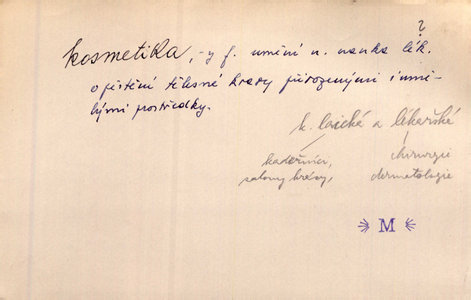 ?
kosmetika, -y f. umění n. nauka lék.
o pěstění tělesné krásy přirozenými i umě-
lými prostředky.
k. laická a lékařská
kadeřnice, chirurgie
salony krásy, dermatologie
M